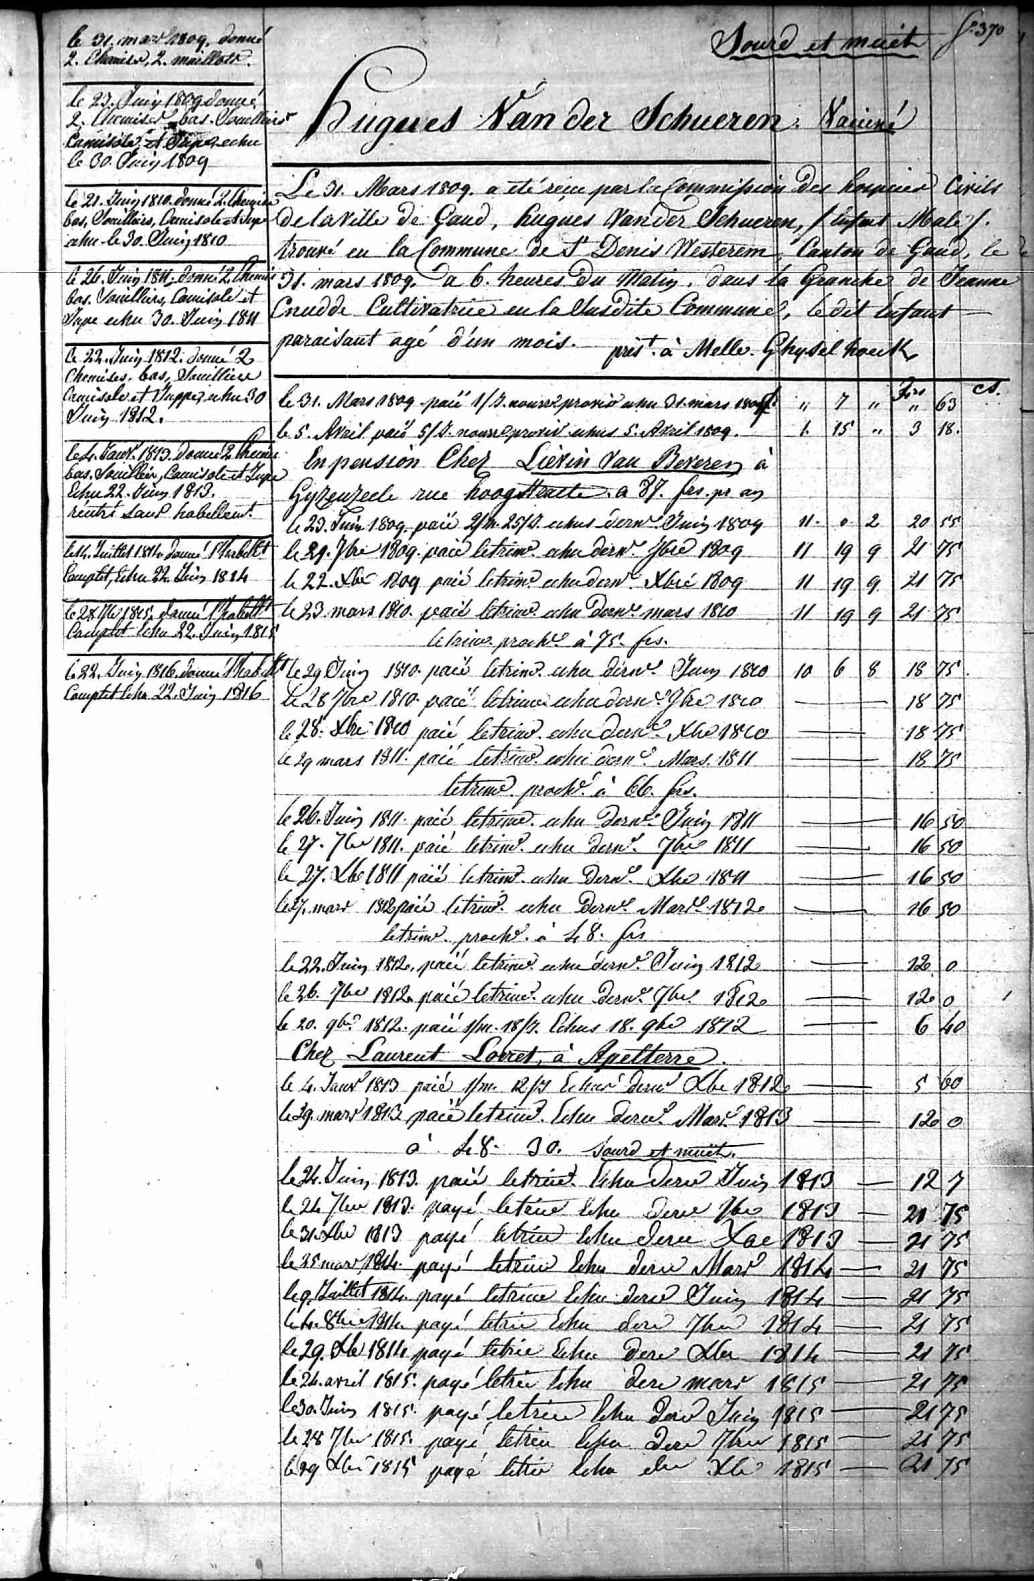 Sourd et muêt
fo 370
le 31. mars 1809. donné
2. Chemises, 2. maillots.
le 23. Juin 1809 donné
2. Chemises, bas, Souilliers
Camisole et Jupe echu
le 30 Juin 1809
le 21. Juin 1810. donné 2 Chemises
bas, Souilliers, Camisole et Jupe
echu le 30. Juin 1810
le 26. Juin 1811. donné 2 Chemises
bas. Souilliers, Camisole et
Jupe echu 30. Juin 1811
le 22. Juin 1812. donné 2
Chemises. bas, Souilliers
Camisole et Juppe, echu 30
Juin 1812.
le 4. Janr. 1813. donné 2 Chemises
bas. Souilliers, Camisole et Jupe
Echu 22. Juin 1813.
rentré sans habellemt.
le 14. Juillet 1814 donné l'habellt
Complet, Echu 22 Juin 1814
le 28 1815. donné l'habellt
Complet echu 22. Juin 1815
le 22. Juin 1816. donné l'habellt
Complet Echu 22. Juin 1816
Hugues Van der Schueren. Vaciné
Le 31. Mars 1809. a eté reçu par la Commission des hospices Civils
de la Ville de Gand, hugues Van der Schueren, / Enfant Male /.
trouvé en la Commune de St Denis Westerem, Canton de Gand, le
31. mars 1809. a 6. heures du Matin, dans la Granche de Jeanne
Cnudde Cultivatrice en la Susdite Commune, le dit Enfant
paraissant agé d'un mois. prést. à Melle. Ghyselhoeck
frs ct.
le 31. Mars 1809 paié 1/J. nourre provis echu 31. mars 1809 " 7 " " 63
le 5. Avril paié 5/J. nourre provis echus 5. Avril 1809. 1. 15 " 3 18.
En pension Chez Liévin Van Beveren à
Gyzenzeele rue hoogstraete. a 87. frs. pr. an
le 23. Juin 1809 paié 2/m. 25/J. echus dernr. Juin 1809 11. " 2 20 55
le 29. 7bre 1809 paié le trimr. echu dernr. 7bre 1809 11 19 9 21 75
le 22. Xbre 1809 paié le trimr. echu dernr. Xbre 1809 11 19 9 21 75
le 23. mars 1810. paié le trimr. echu dernr. mars 1810 11 19 9 21 75
le trimr. prochr. à 75. frs.
le 29 Juin 1810. paié le trimr. echu dernr. Juin 1810 10 6 8 18 75.
le 28 7bre 1810. paié le trimr. echu dernr. 7bre 1810 — 18 75
le 28. Xbre 1810 paié le trimr. echu dernr. Xbre 1810 — 18 75
le 29 mars 1811. paié le trimr. echu dernr. Mars. 1811 — 18 75
le trimr. prochr. à 66. frs.
le 26. Juin 1811. paié le trimr. echu dernr. Juin 1811 — 16 50
le 27. 7bre 1811. paié le trimr. echu dernr. 7bre 1811 — 16 50
le 27. Xbre 1811 paié le trimr. echu dernr. Xbre 1811 — 16 50
le 27. mars 1812 paié le trimr. echu dernr. Mars. 1812 — 16 50
le trimr. prochr. à 48. frs
le 22. Juin 1812. paié le trimr. echu dernr. Juin 1812 — 12 0
le 26. 7bre 1812 paié le trimr. echu dernr. 7bre. 1812 — 12 0
le 20. 9bre 1812. paié 1/m. 18/J. Echus 18. 9bre 1812 — 6 40
Chez Laurent Lovret, à Apelterre.
le 4. Janr 1813 paié 1/m. 12/J Echus dernr Xbre 1812 — 5 60
le 29. mars 1813 paié le trimr. Echu dernr. Mars. 1813 — 12 0
à 48. 30. Sourd et muêt.
le 24. Juin 1813. paié le trimr. Echu dere Juin 1813 — 12 7
le 24 7bre 1813. payé le trire Echu dere 7bre 1813 — 21 75
le 31 Xbre 1813 payé le trire Echu dere Xbre 1813 — 21 75
le 25 mars 1814. payé le trire Echu dere Mars 1814 — 21 75
le 9. Juillet 1814. payé le trire Echu dere Juin 1814 — 21 75
le 4. 8bre 1814 payé le trire Echu dere 7bre 1814 — 21 75
le 29. Xbre 1814 payé le trire Echu dere Xbre 1814 — 21 75
le 24. avril 1815. payé le trire Echu dere mars 1815 — 21 75
le 30. Juin 1815. payé le trire Echu dere Juin 1815 — 21 75
le 28 7bre 1815. payé le trire Echu dere 7bre 1815 — 21 75
le 29 Xbre 1815 payé le trire Echu dere Xbre 1815 — 21 75